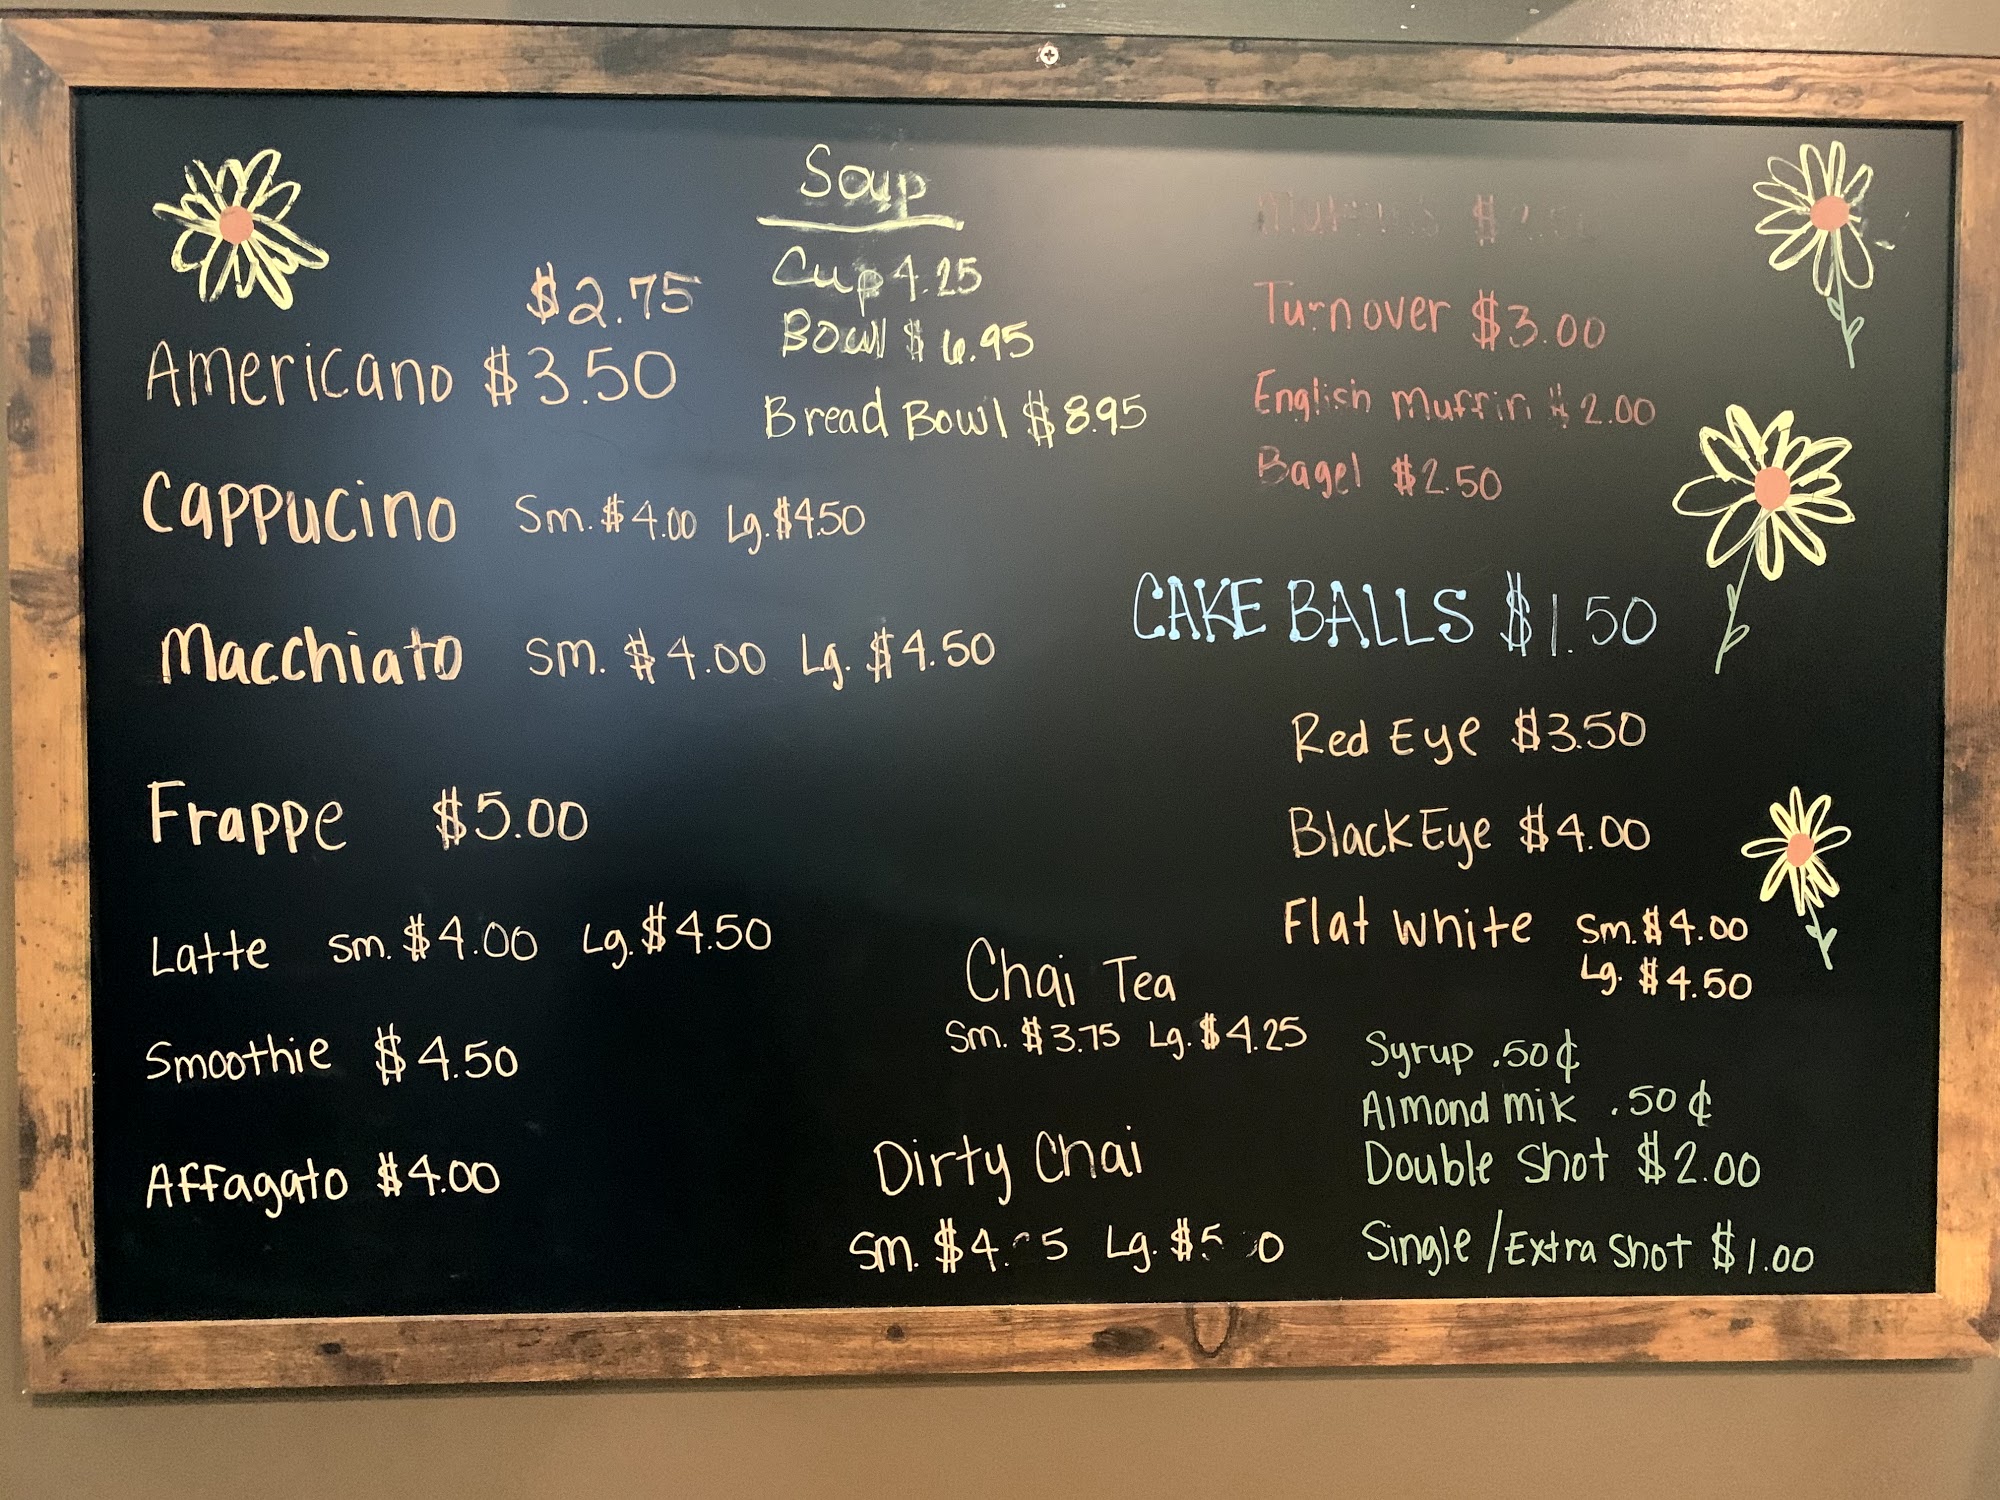 $2.75
Americano $3.50
Cappucino Sm. $4.00 Lg. $4.50
Macchiato Sm. $4.00 Lg. $4.50
Frappe $5.00
Latte Sm. $4.00 Lg. $4.50
Smoothie $4.50
Affagato $4.00
Soup
Cup 4.25
Bowl $6.95
Bread Bowl $8.95
Turnover $3.00
English Muffin $2.00
Bagel $2.50
CAKE BALLS $1.50
Red Eye $3.50
Black Eye $4.00
Flat White Sm. $4.00
Lg. $4.50
Chai Tea
Sm. $3.75 Lg. $4.25
Dirty Chai
Sm. Lg.
Syrup .50¢
Almond mik .50¢
Double Shot $2.00
Single/Extra Shot $1.00